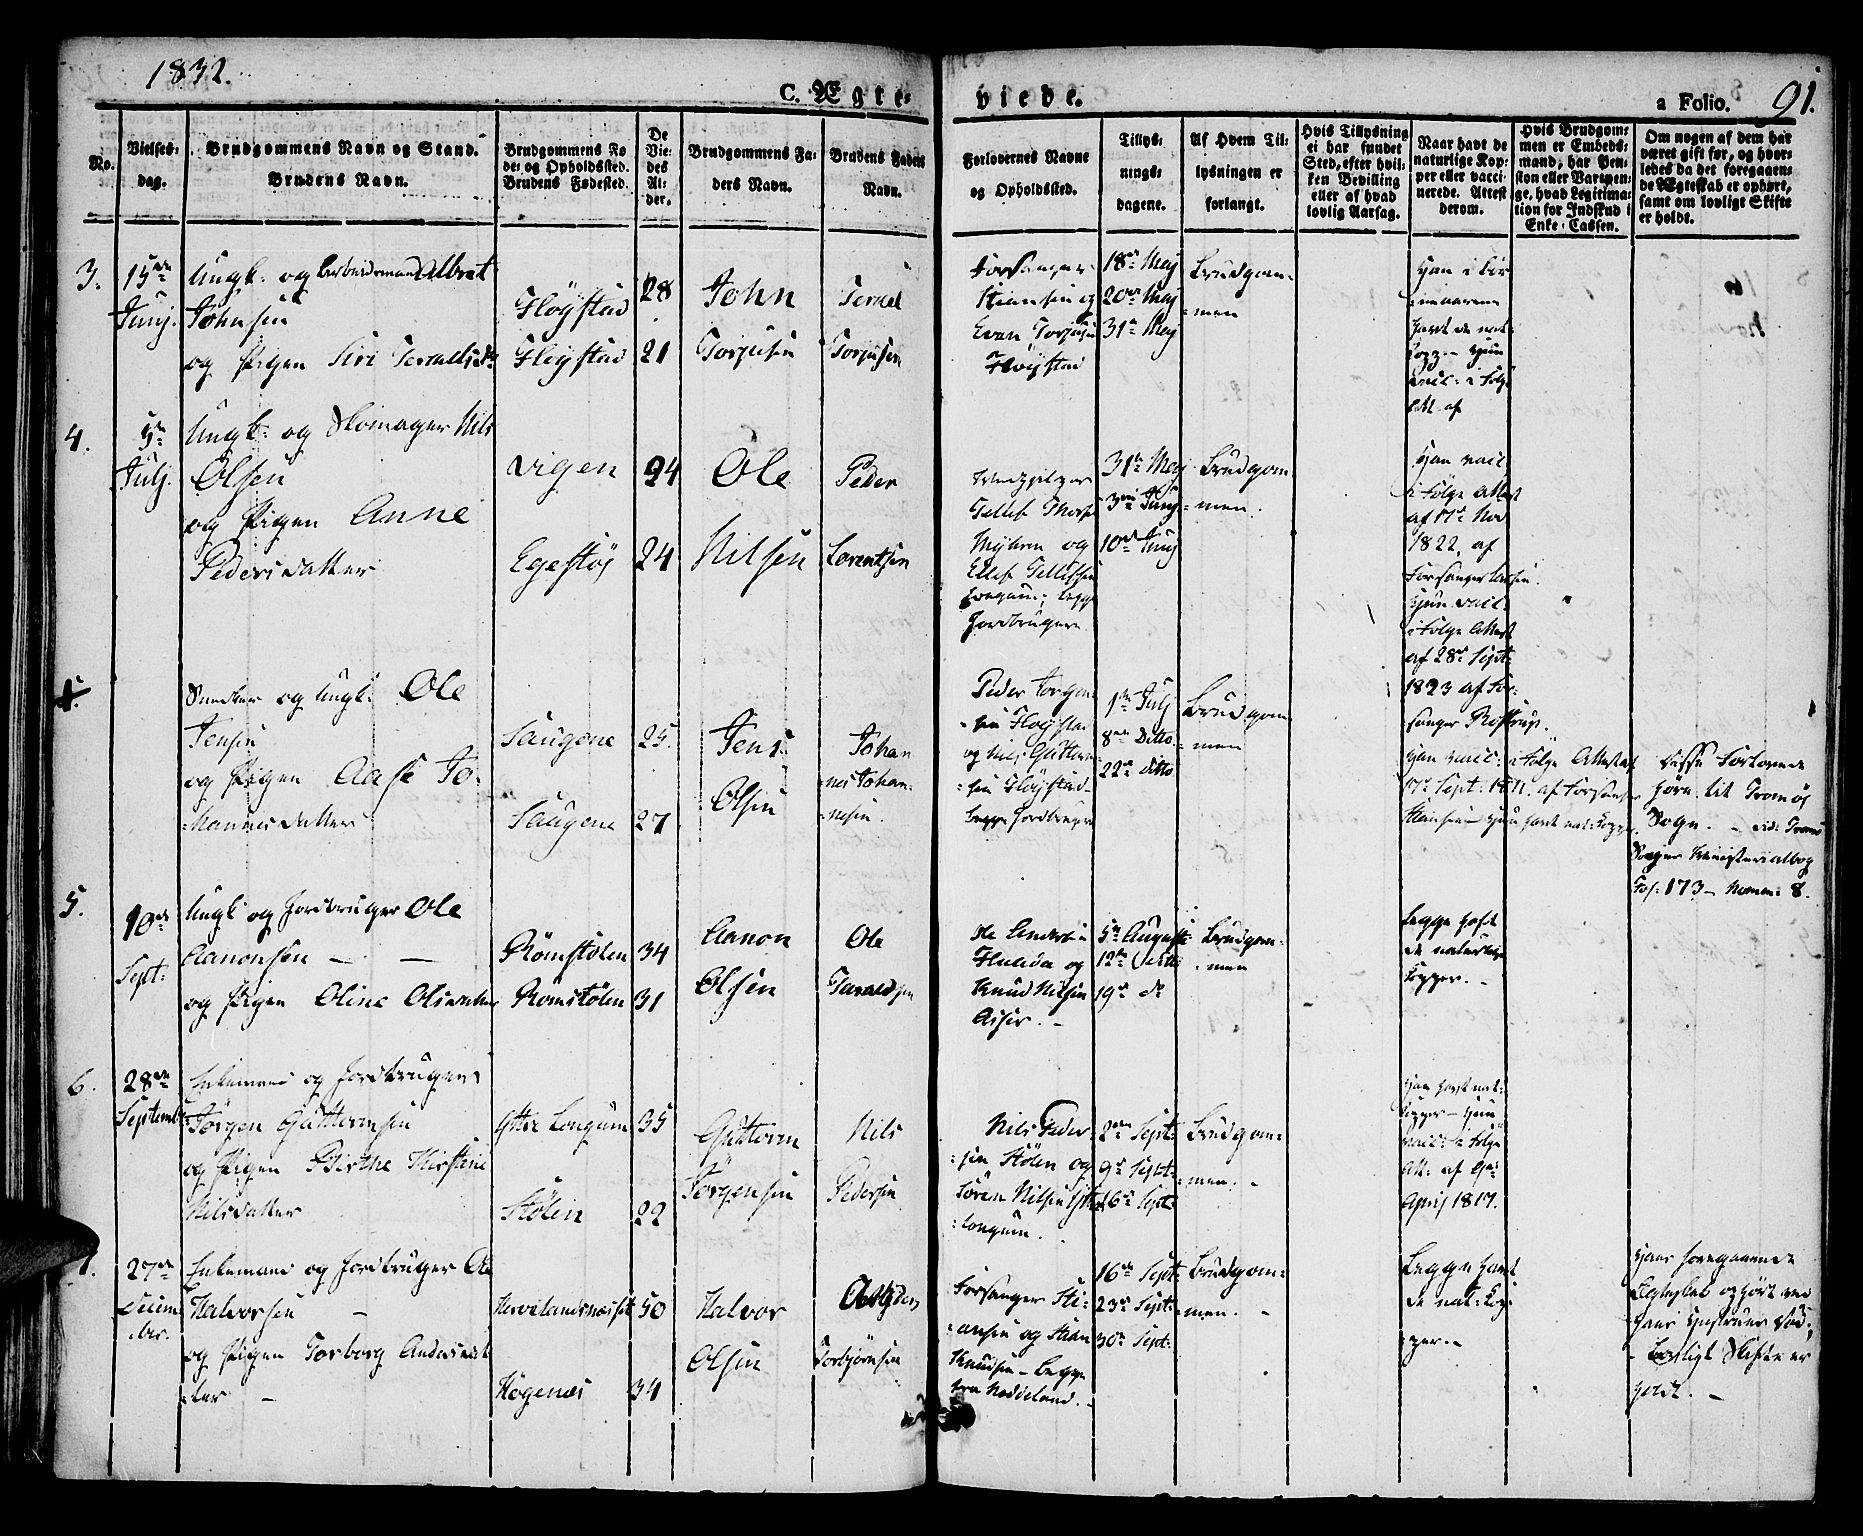 1832.
C. Ægte-
viede.
a Folio. 91.
No.
Vielses-
dag.
Brudgommens Navn og Stand.
Brudens Navn.
Brudgommens Fø-
de og Opholdssted.
Brudens Fødested.
De
Vie-
des
Al-
der.
Brudgommens Fa-
ders Navn.
Brudens Faders
Navn.
Forlovernes Navne
og Opholdssted.
Tillys-
nings-
dagene.
Af Hvem Til-
lysningen er
forlangt.
Hvis Tillysning
ei har fundet
Sted, efter hvil-
ken Bevilling
eller af hvad
lovlig Aarsag.
Naar havt de
naturlige Kop-
per eller vacci-
nerede. Attest
derom.
Hvis Brudgom-
men er Embeds-
mand, har Pen-
sion eller Vartpen-
ge, hvad Legitima-
tion for Indskud i
Enke-Cassen.
Om nogen af dem har
været gift før, og hvor-
ledes da det foregaaen-
de Ægteskab er ophørt,
samt om lovligt Skifte
er holdt.
3.
15de
Junj.
Ungk: og Arbeidsmand Albret
Johnsen
og Pigen Siri Terkelsdr
Fløystad
Fløystad
28
21
John
Torjusen
Terkel
Torjusen
Forsanger
Stiansen og
Even Torjusen
Fløystad
18de Mej
20de Mej
31te Mej
Brudgom-
-men
Han i Bør
neaarene
havt de nat:
Kopp - Hun
vacc: i Følge
Att. af
4.
5te
Julj.
Ungk: og Skomager Nils
Olsen
og Pigen Anne
Pedersdatter
Vigen
Egestøj
24
24
Ole
Nilsen
Peder
Lorentsen
Tellef Thors
Myhren og
Ellef Tellefsen
Longum; begge
Jordbrugere
31te Mej
3die Junj
10de Junj
Brudgom
-men.
Han vacc
i Følge Attest
af 17de Nov
1822, af
Forsanger
Hun vacc:
i Følge Attest
af 28de Sept:
1823 af For:
sanger Røstrup.
Ungk: Ole
Jensen
og Pigen Aase Jo-
hannesdatter
Saugene
Saugene
25.
27
Jens
Olsen
Johan
nes Johan-
nesen.
Peder Jørgen-
sen Fløystad
og Nils Guttorm
sen Fløystad
begge Jordbruger
1ste Julj
8de Ditto
22de ditto
Brudgom
-men
Han vacc: i Følge Attest af
17de Sept: af Forsanger
Stiansen - Hun havt nat: Kopper.
Disse Forlovede
hørn: til Tromøe
Sogn. - vid: Tromø
Sogns Ministerialbog
Fol: 173 - Numer: 8.
5.
10de
Sept:
Ungk: og Jordbruger Ole
Aanonsen
og Pigen Oline Olsdatter
Rømstølen
Rømstølen
34
31
Aanon
Olsen
Ole
Taraldsen
Ole Andersen
og
Knud Nilsen
Asser.
5te August
12te ditto
19de do
Brudgom-
-men
Begge havt
de naturlige
Kopper.
6.
28de
Septemb:
Enkemand og Jordbruger
Jørgen Guttormsen
og Pigen Birthe Kirstine
Nilsdatter
Yttre Longum
Stølen
35
22
Guttorm
Jørgensen
Nils
Pedersen
Nils Peder-
sen Stølen og
Søren Nilsen Ytt
Longum.
2den Sept:
9de Sept:
16de Sept:
Brudgom-
-men.
Han havt nat:
Kopper - Hun
vacc: i Følge
Att: af
April 1817.
7.
27de
Decem
ber.
Enkemand og Jordbruger Ole
Halvorsen
og Pigen Torborg Andersdat
ter
Høgenæs
50
34
Halvor
Olsen
Anders
Torbjørnsen
Forsanger Sti-
ansen og Stian
Knudsen - begge
fra Neddeland.
16de Sept:
23de Sept:
30te Sept:
Brudgom-
men.
Begge havt
de nat: Ko-
pper.
Hans foregaaende
Egteskab ophørt ved
hans Hustrues Død;
- Lovligt Skifte er
holdt.